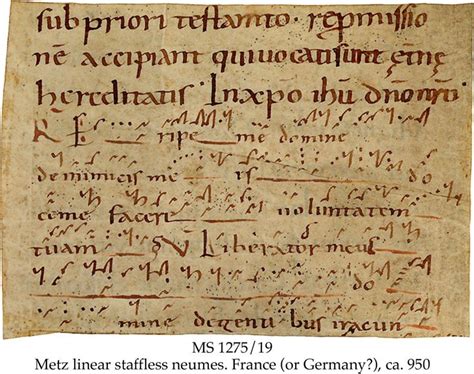 sub priori testamto. repmissio
nē accipiant qui uocati sunt ęt̄nę
hereditatis. In xp̄o ih̄u dn̄o nr̄o
R E ripe me domine
de inimicis me is do
ce me facere uoluntatem
tuam V Liberator meus
do
mine de genti bus iracun
MS 1275/19
Metz linear staffless neumes. France (or Germany?), ca. 950